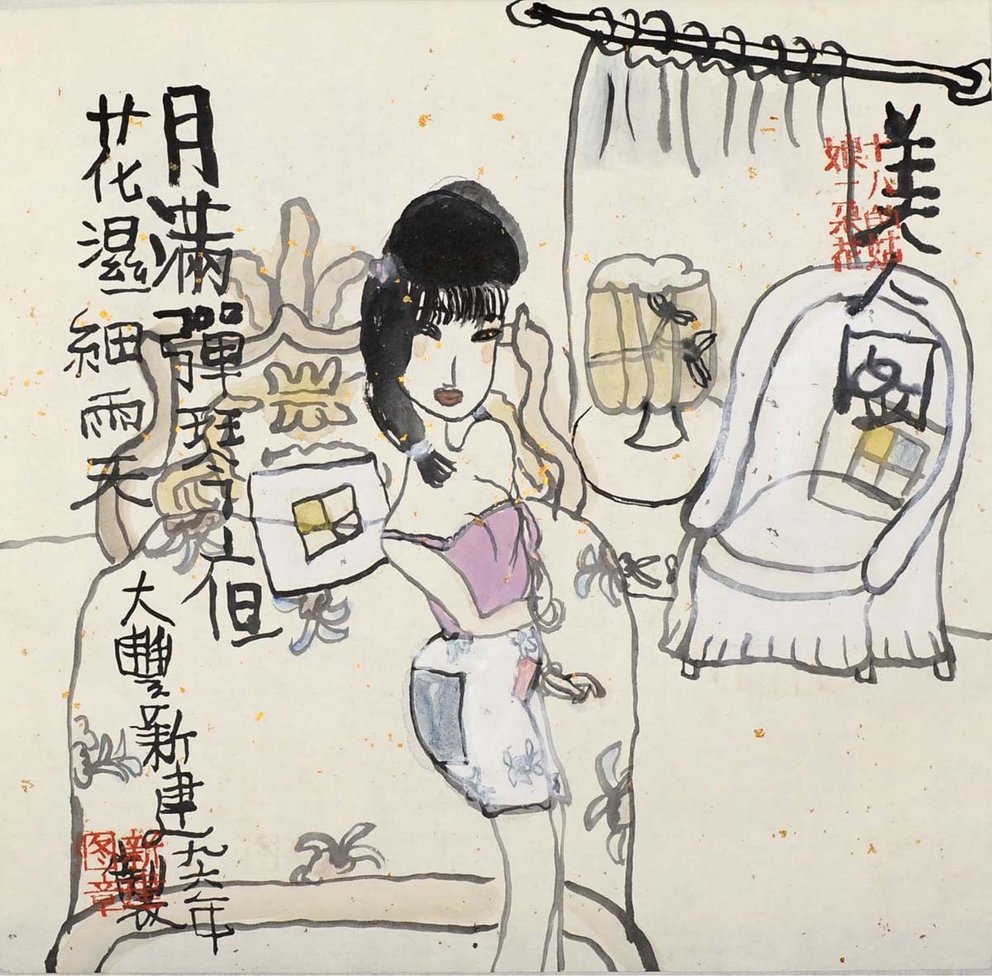 美人图
十八的姑
娘一朵花
月滿彈琴
花濕細雨天
大豐新建九六年製
新建
图章